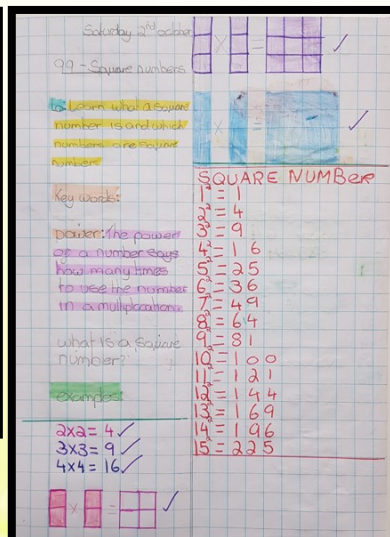 Saturday 2nd october
99 - Square numbers
Lo: Learn what a square
number is and which
numbers are square
numbers
Key words:
power: The power
of a number says
how many times
to use the number
in a multiplication.
what is a square
number?
examples:
2x2= 4 ✓
3x3= 9 ✓
4x4= 16 ✓
x = ✓
x = ✓
x = ✓
SQUARE NUMBER
1²= 1
2²= 4
3²= 9
4²= 16
5²= 25
6²= 36
7²= 49
8²= 64
9²= 81
10²= 100
11²= 121
12²= 144
13²= 169
14²= 196
15²= 225